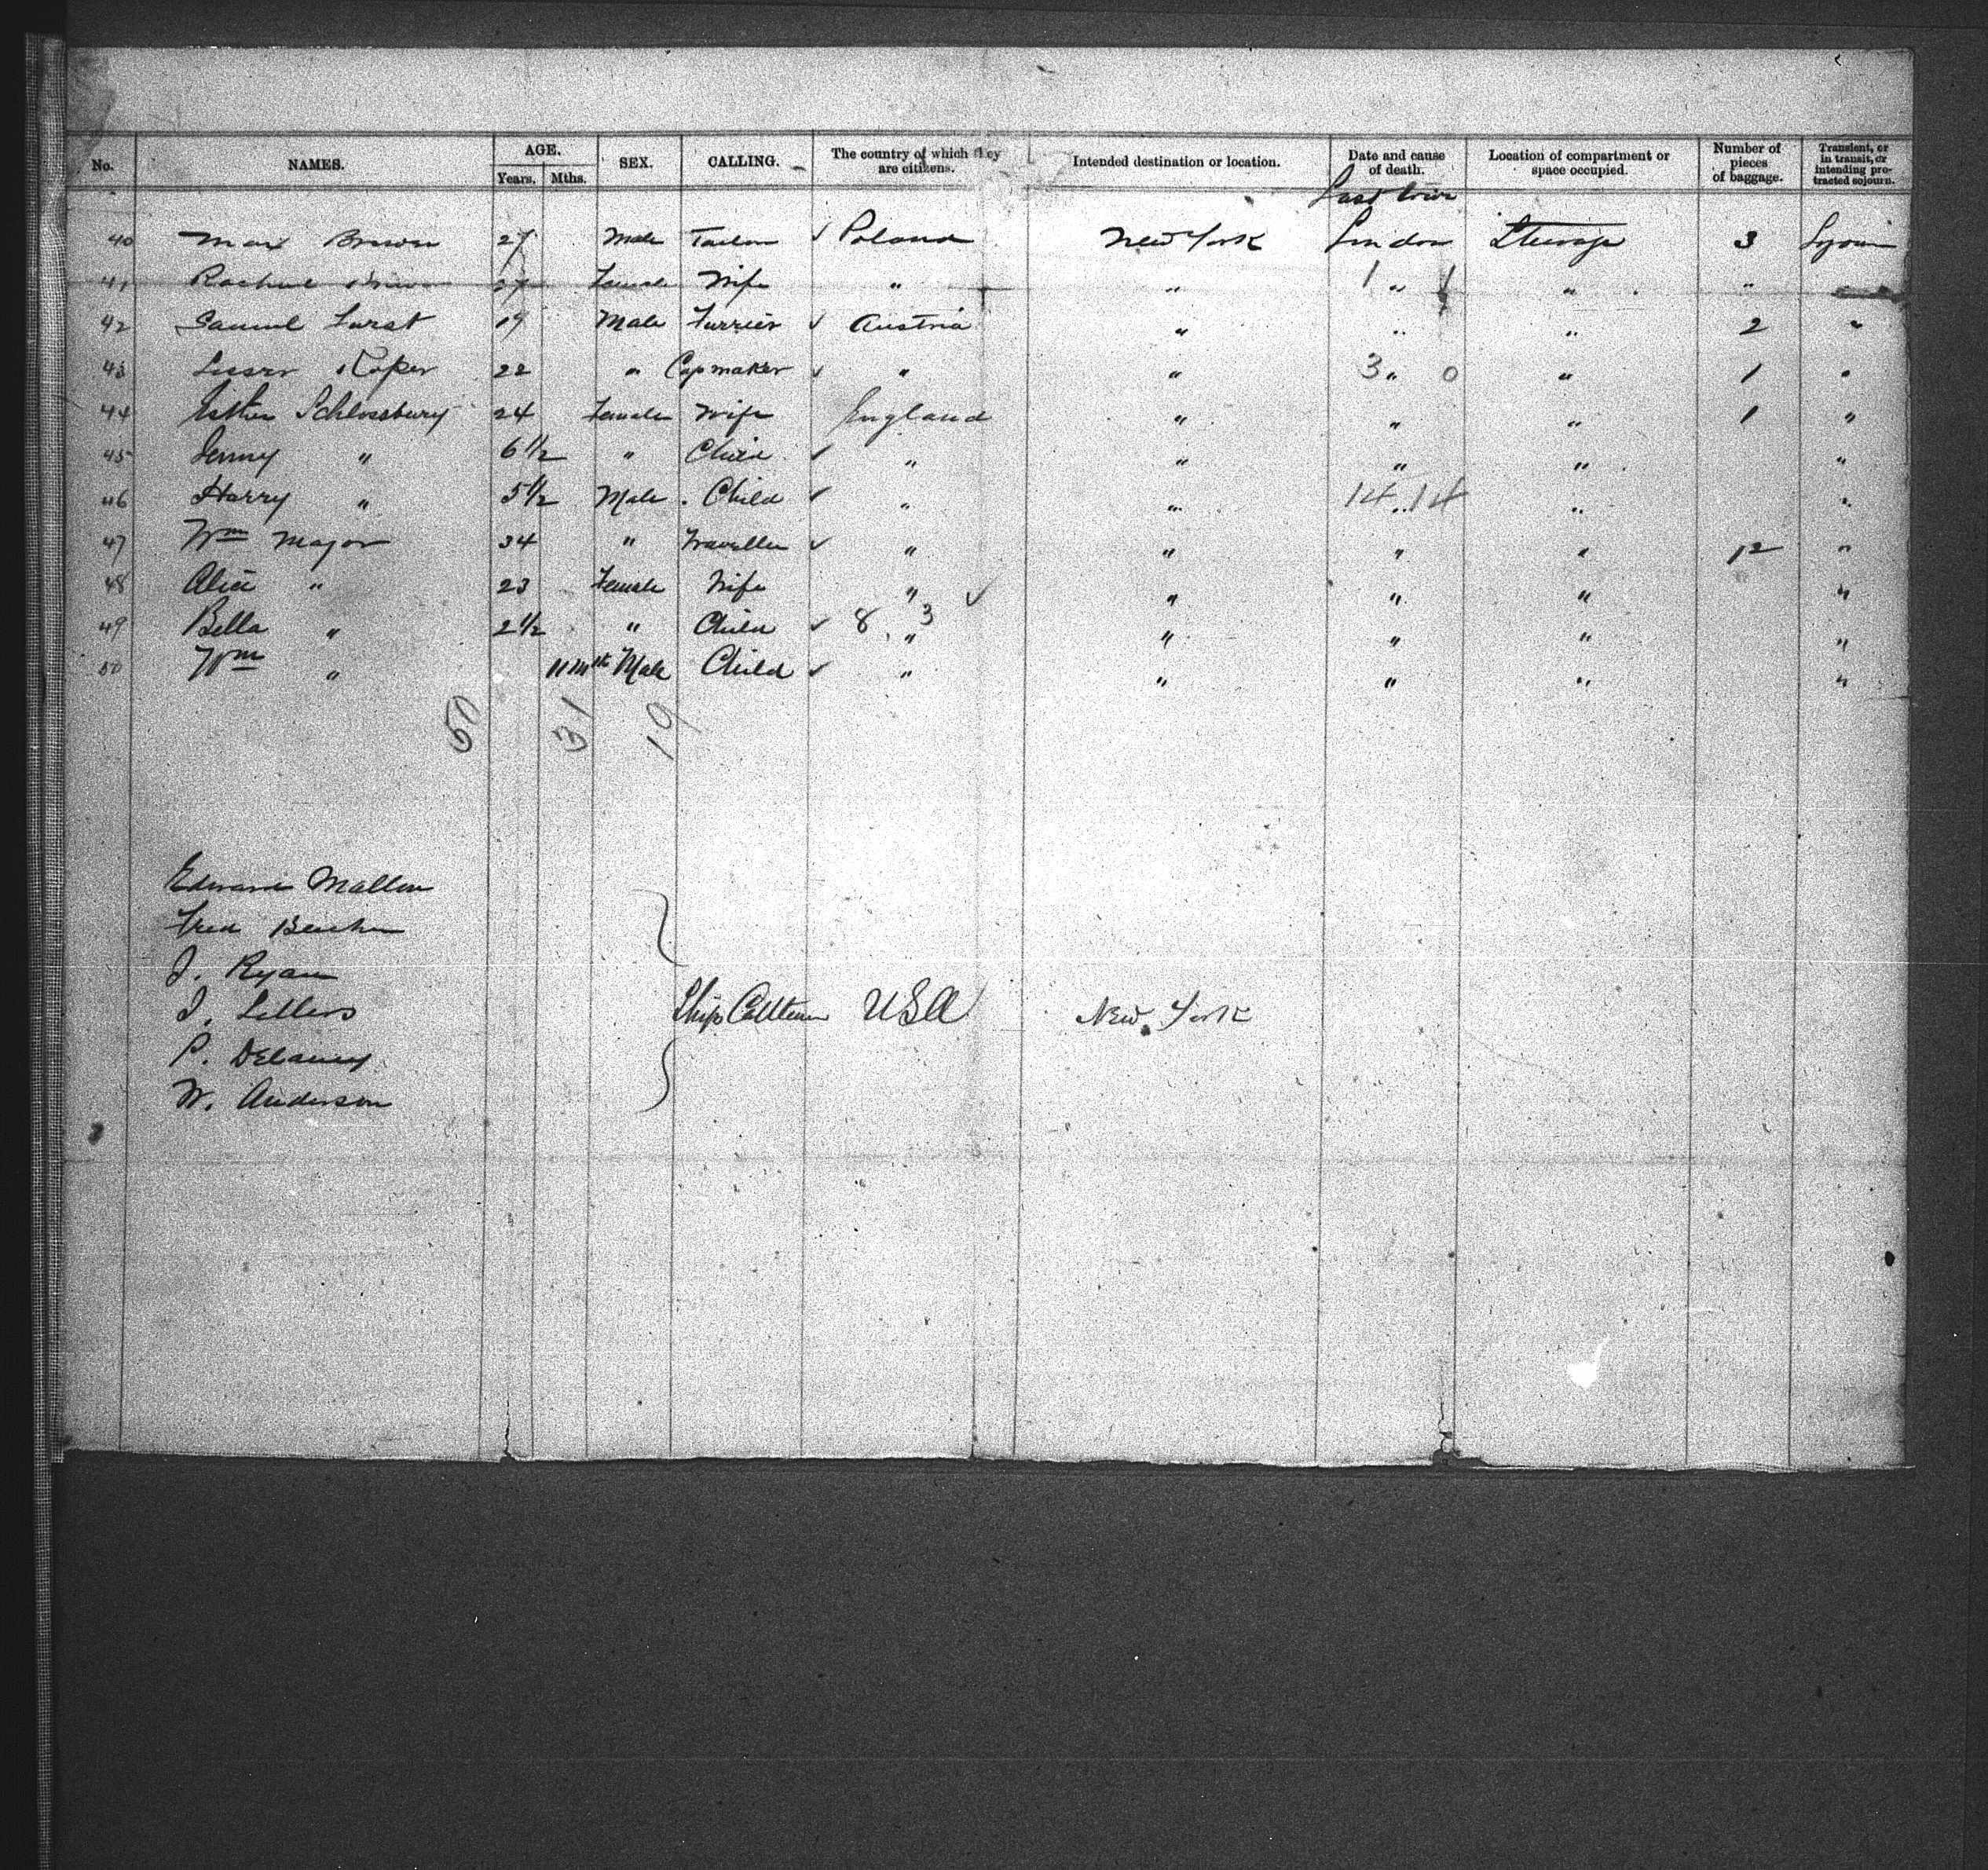 No. NAMES. AGE. Years. Mths. SEX. CALLING. The country of which they are citizens. Intended destination or location. Date and cause of death. Location of compartment or space occupied. Number of pieces of baggage. Transient, or in transit, or intending protracted sojourn.
Last town
40 Max Brown 27 Male Tailor ✓ Poland New York London Steerage 3 Sojourn
41 Rachel Brown 27 Female Wife " " 1 " 1 " " "
42 Samuel Furst 19 Male Furrier ✓ Austria " " " 2 "
43 22 " Capmaker ✓ " " 3 " 0 " 1 "
44 Esther Schlossburg 24 Female Wife England " " " 1 "
45 Jenny " 6 1/2 " Child ✓ " " " " "
46 Harry " 5 1/2 Male Child ✓ " " 14 " 14 " "
47 Wm Major 34 " Traveller ✓ " " " " 12 "
48 Alice " 23 Female Wife " ✓ " " " "
49 Bella " 2 1/2 " Child ✓ 8 " 3 " " " "
50 Wm " 11 mth Male Child ✓ " " " " "
50 31 19
Edward Mallon
Fred
J. Ryan
J. Sellers Ships Cattlemen USA New York
P. Delaney
W. Anderson